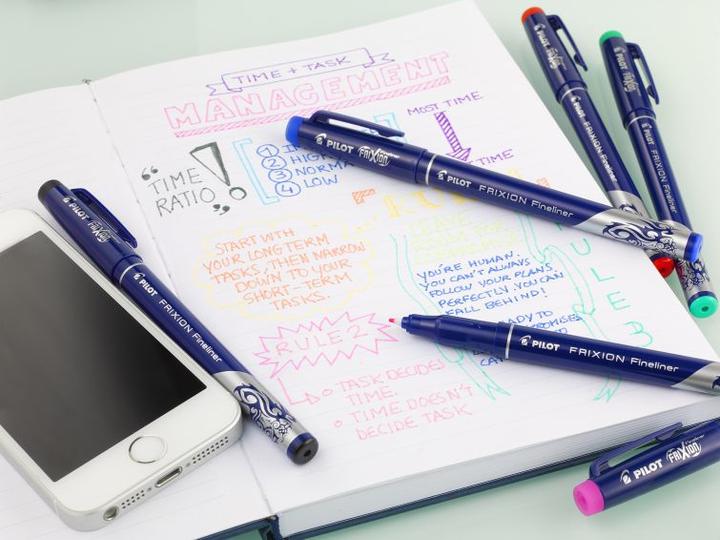 TIME + TASK
MANAGEMENT
"TIME
RATIO"
!
1
2 HIGH
3 NORMA
4 LOW
MOST TIME
TIME
START WITH
YOUR LONG TERM
TASKS, THEN NARROW
DOWN TO YOUR
SHORT-TERM
TASKS.
YOU'RE HUMAN.
YOU CAN'T ALWAYS
FOLLOW YOUR PLANS
PERFECTLY. YOU CAN
FALL BEHIND!
RULE 3
RULE 2
TASK DECIDES
TIME.
TIME DOESN'T
DECIDE TASK
PILOT FRIXION
PILOT FRIXION Fineliner
PILOT FRIXION
PILOT FRIXION Fineliner
PILOT FRIXION
PILOT FRIXION Fineliner
PILOT FRIXION
PILOT FRIXION Fineliner
PILOT FRIXION Fineliner
PILOT FRIXION